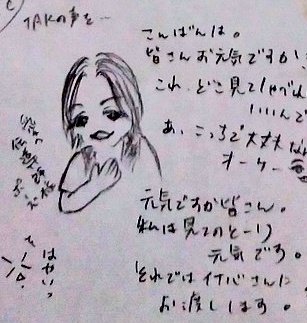 TAKの声を…
こんばんは。
皆さんお元気ですか
これ、どこ見てしゃべれ
いいんで
あ、こっちで大丈夫
オーケー
元気ですか皆さん。
私は見てのとーり
元気です。
それでは
お渡しします。
はやいっ